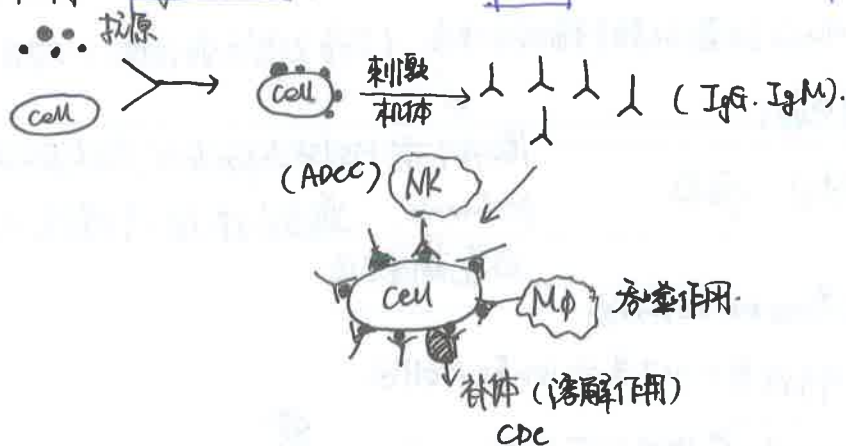 抗原
cell
cell
刺激
机体
(IgG. IgM).
(ADCC) NK
cell
Mφ 吞噬作用.
补体 (溶解作用)
CDC